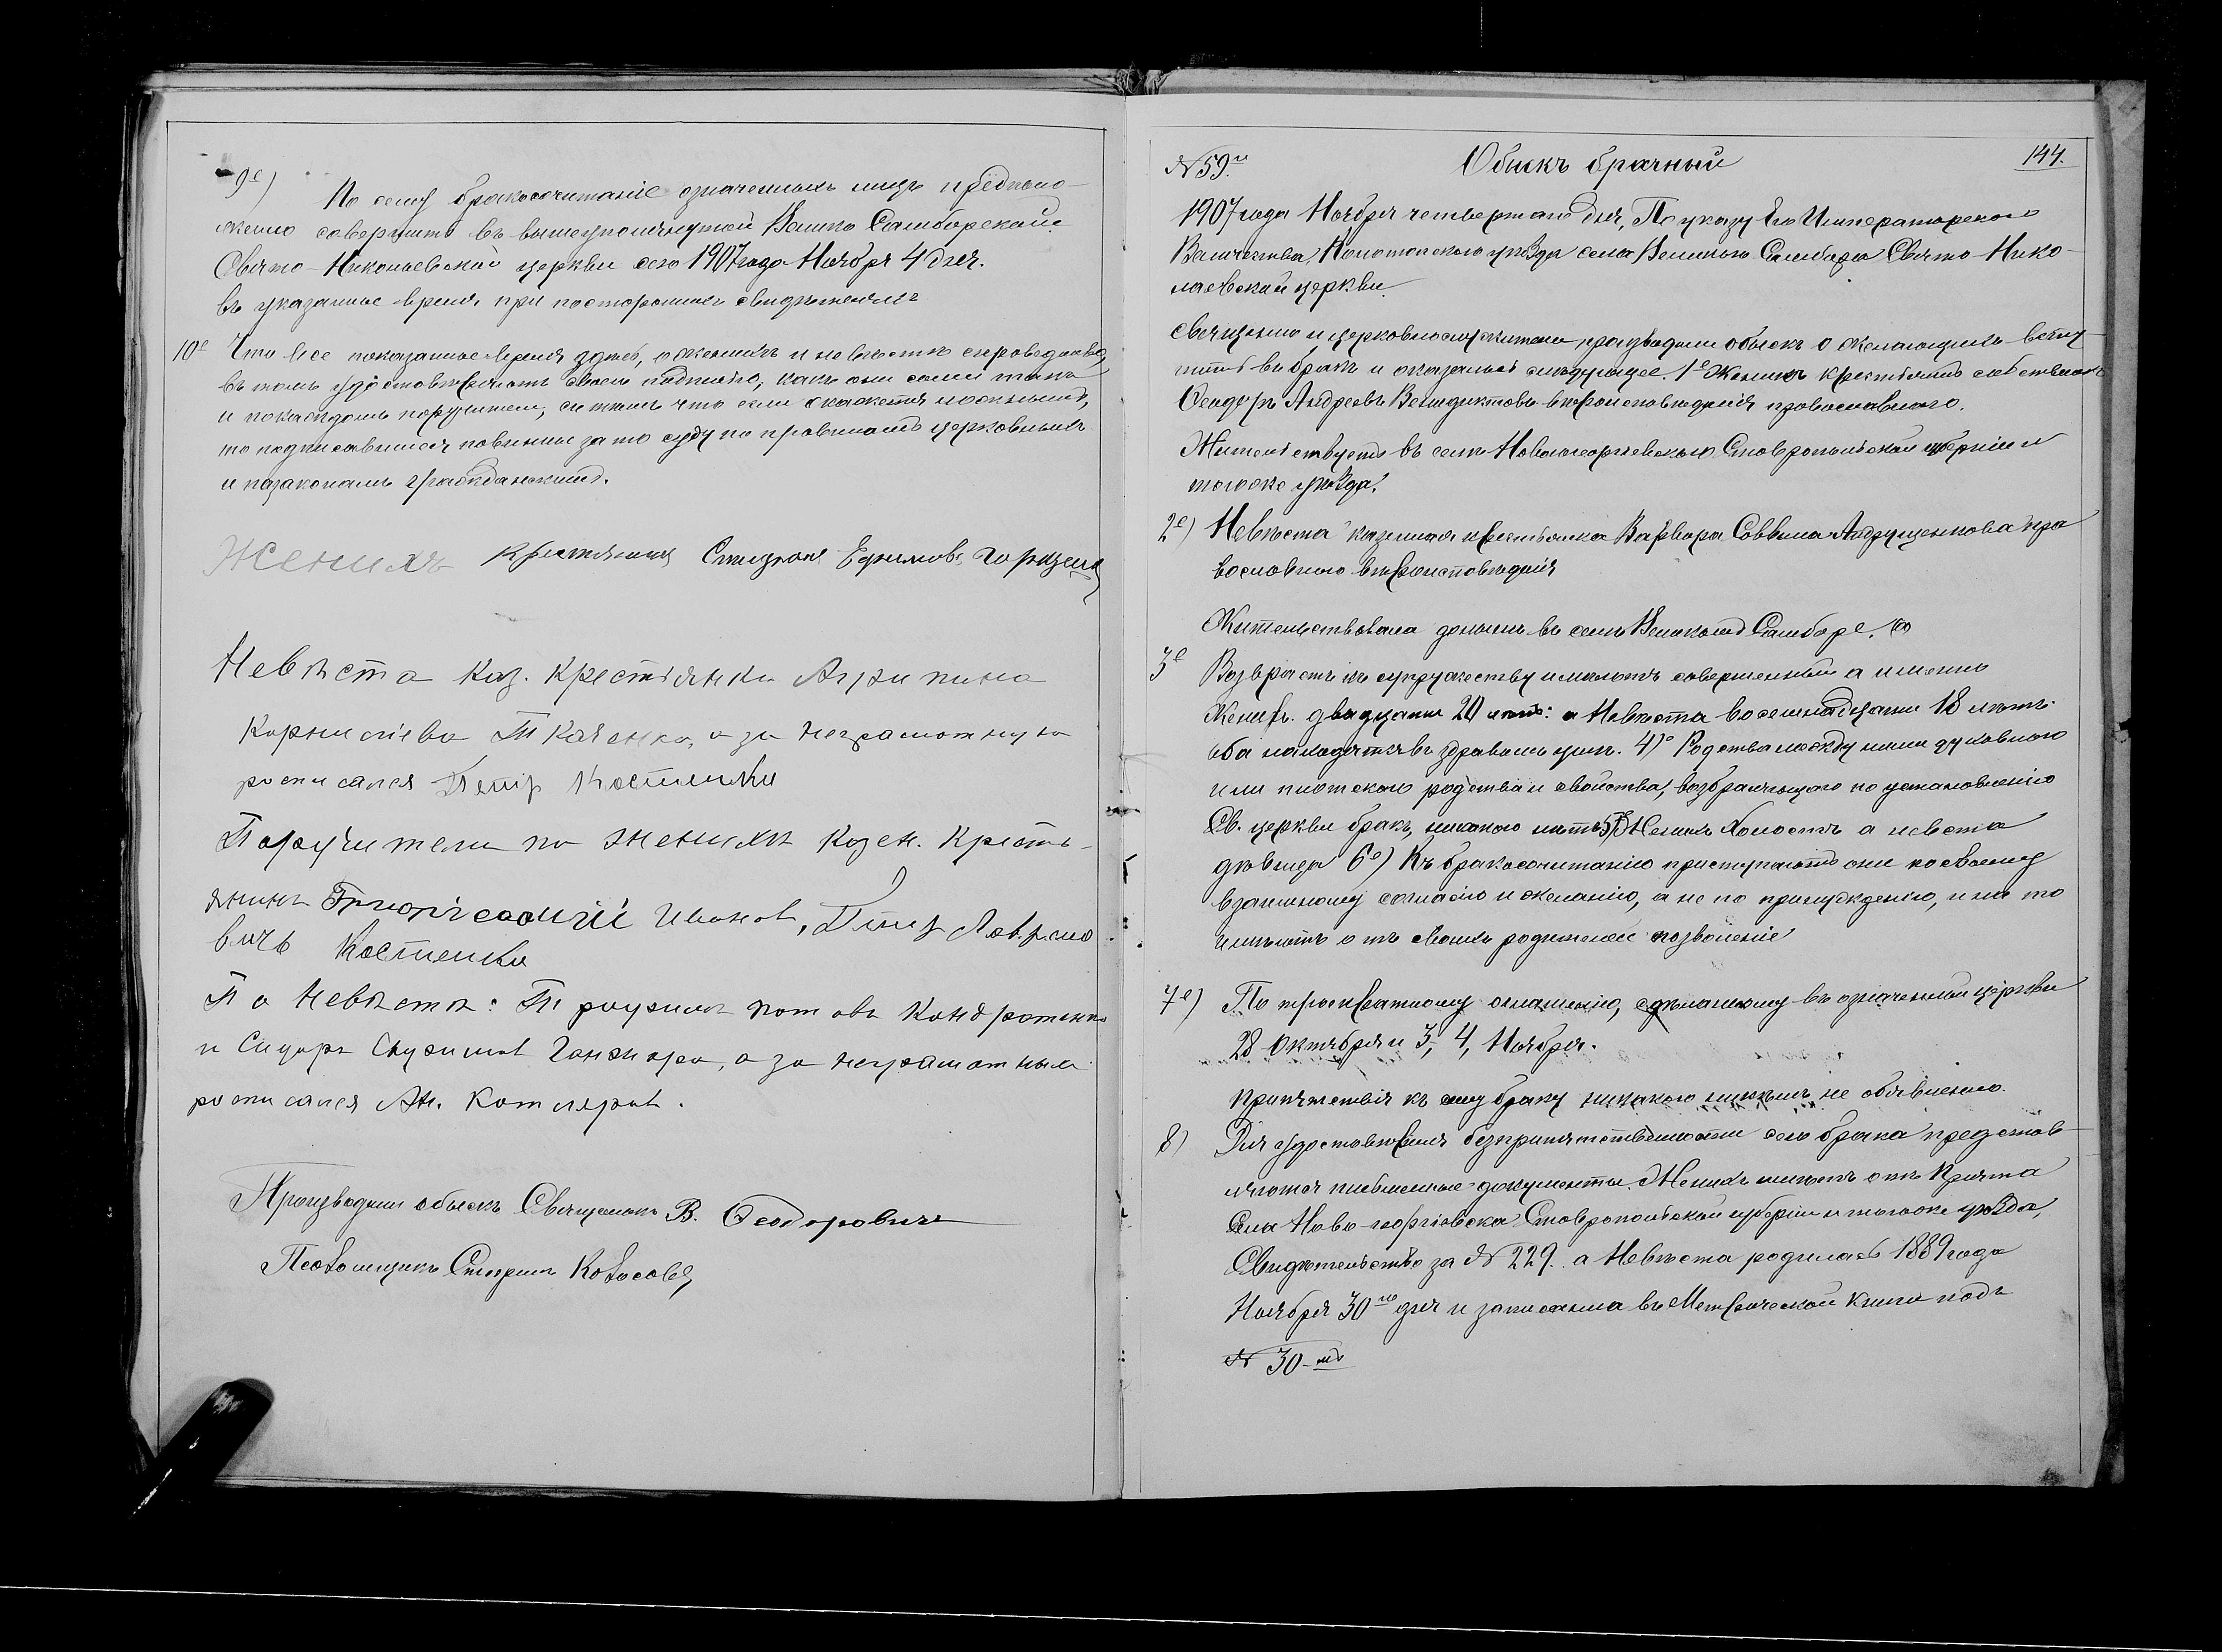 9е) По сему бракосочитаніе означенныхъ лицъ предполо-
жено совершить въ вышеупомянутой Велико Самборской
Свято-Николаевской церкви сего 1907 года Ноября 4 дня.
въ указанное время при постороннихъ свидѣтеляхъ
10е Что все показанное здѣсь, о женихѣ и невѣстѣ справедливо
въ томъ удостовѣряютъ своею подписью, какъ они сами такъ
и по каждомъ поручители, съ тѣмъ что если окажется ложнымъ,
то подписавшіеся повинны за то суду по правиламъ церковнымъ
и по законамъ гражданскимъ.
Женихъ крестянинъ Ефимовъ
Невѣста Каз. Крестьянка Агрипина
Корниліева Ткаченко, а за неграмотную
росписался Петръ Костенко
Поручители по женихѣ Казен. Кресть-
янинъ Ивановъ, Петръ
вичъ Костенко
По Невѣстѣ: Трофимъ Кондратенко
и Сидоръ а за неграмотныхъ
росписался Ан. Котляровъ.
Производили обыскъ Священникъ В. Ѳеодоровичъ
Псаломщикъ
N 59й Обыскъ брачный 144.
1907 года Ноября четвертаго дня, По указу Его Императорскаго
Величества, Конотопскаго уѣзда села Великого Самбора Свято-Нико-
лаевской церкви
священно и церковнослужители производили обыскъ о желающихъ всту-
пить въ бракъ и оказалось слѣдующее. 1е Женихъ крестьянинъ собственникъ
Ѳеодоръ Андреевъ Венедиктовъ вѣроисповѣданія православного.
Жительствуетъ въ селѣ Новогеоргіевскомъ Ставропольской губерніи и
тогоже уѣзда.
2е) Невѣста казенная крестьянка Варвара Саввина Андрущенкова пра
вославного вѣроисповѣданія
Жительствовала донынѣ въ селѣ Великомъ Самборѣ.
3е Возрастъ къ супружеству имѣютъ совершенный а именно
Жених. двадцати 20 лѣтъ: а Невѣста восемнадцати 18 лѣтъ.
оба находятся въ здравомъ умѣ. 4)е Родства между ними духовного
или плотского родства и свойства, возбраняющаго по установленію
Св. церкви бракъ, никакого нѣтъ 5е) Женихъ холостъ а невеста
дѣвица 6е) Къ бракосочитанію приступаютъ они по своему
взаимному согласію и желанію, а не по принужденію, и на то
имѣютъ отъ своихъ родителей позволеніе
7е) По троекратному оглашенію, сдѣланному въ означенной церкви
28 Октября и 3, 4, Ноября.
препятствія къ сему браку никакого никѣмъ не объявлено.
8) Для удостовѣренія безпрепятственности сего брака представ-
ляются письменные документы. Женихъ имѣетъ отъ Причта
Села Ново-георгіевска Ставропольской губерніи и тогоже уѣзда,
Свидѣтельство за N 229. а Невѣста родилась 1889 года
Ноября 30го дня и записана въ Метрической книгѣ подъ
N 30-мъ